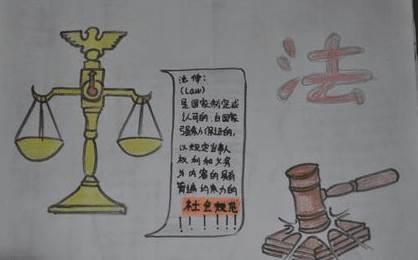 法律:
(Law)
是国家制定或
认可的,由国家
强制力保证的,
以规定当事人
权利和义务
为内容的具有
普遍约束力的
社会规范
!!!!!!
法